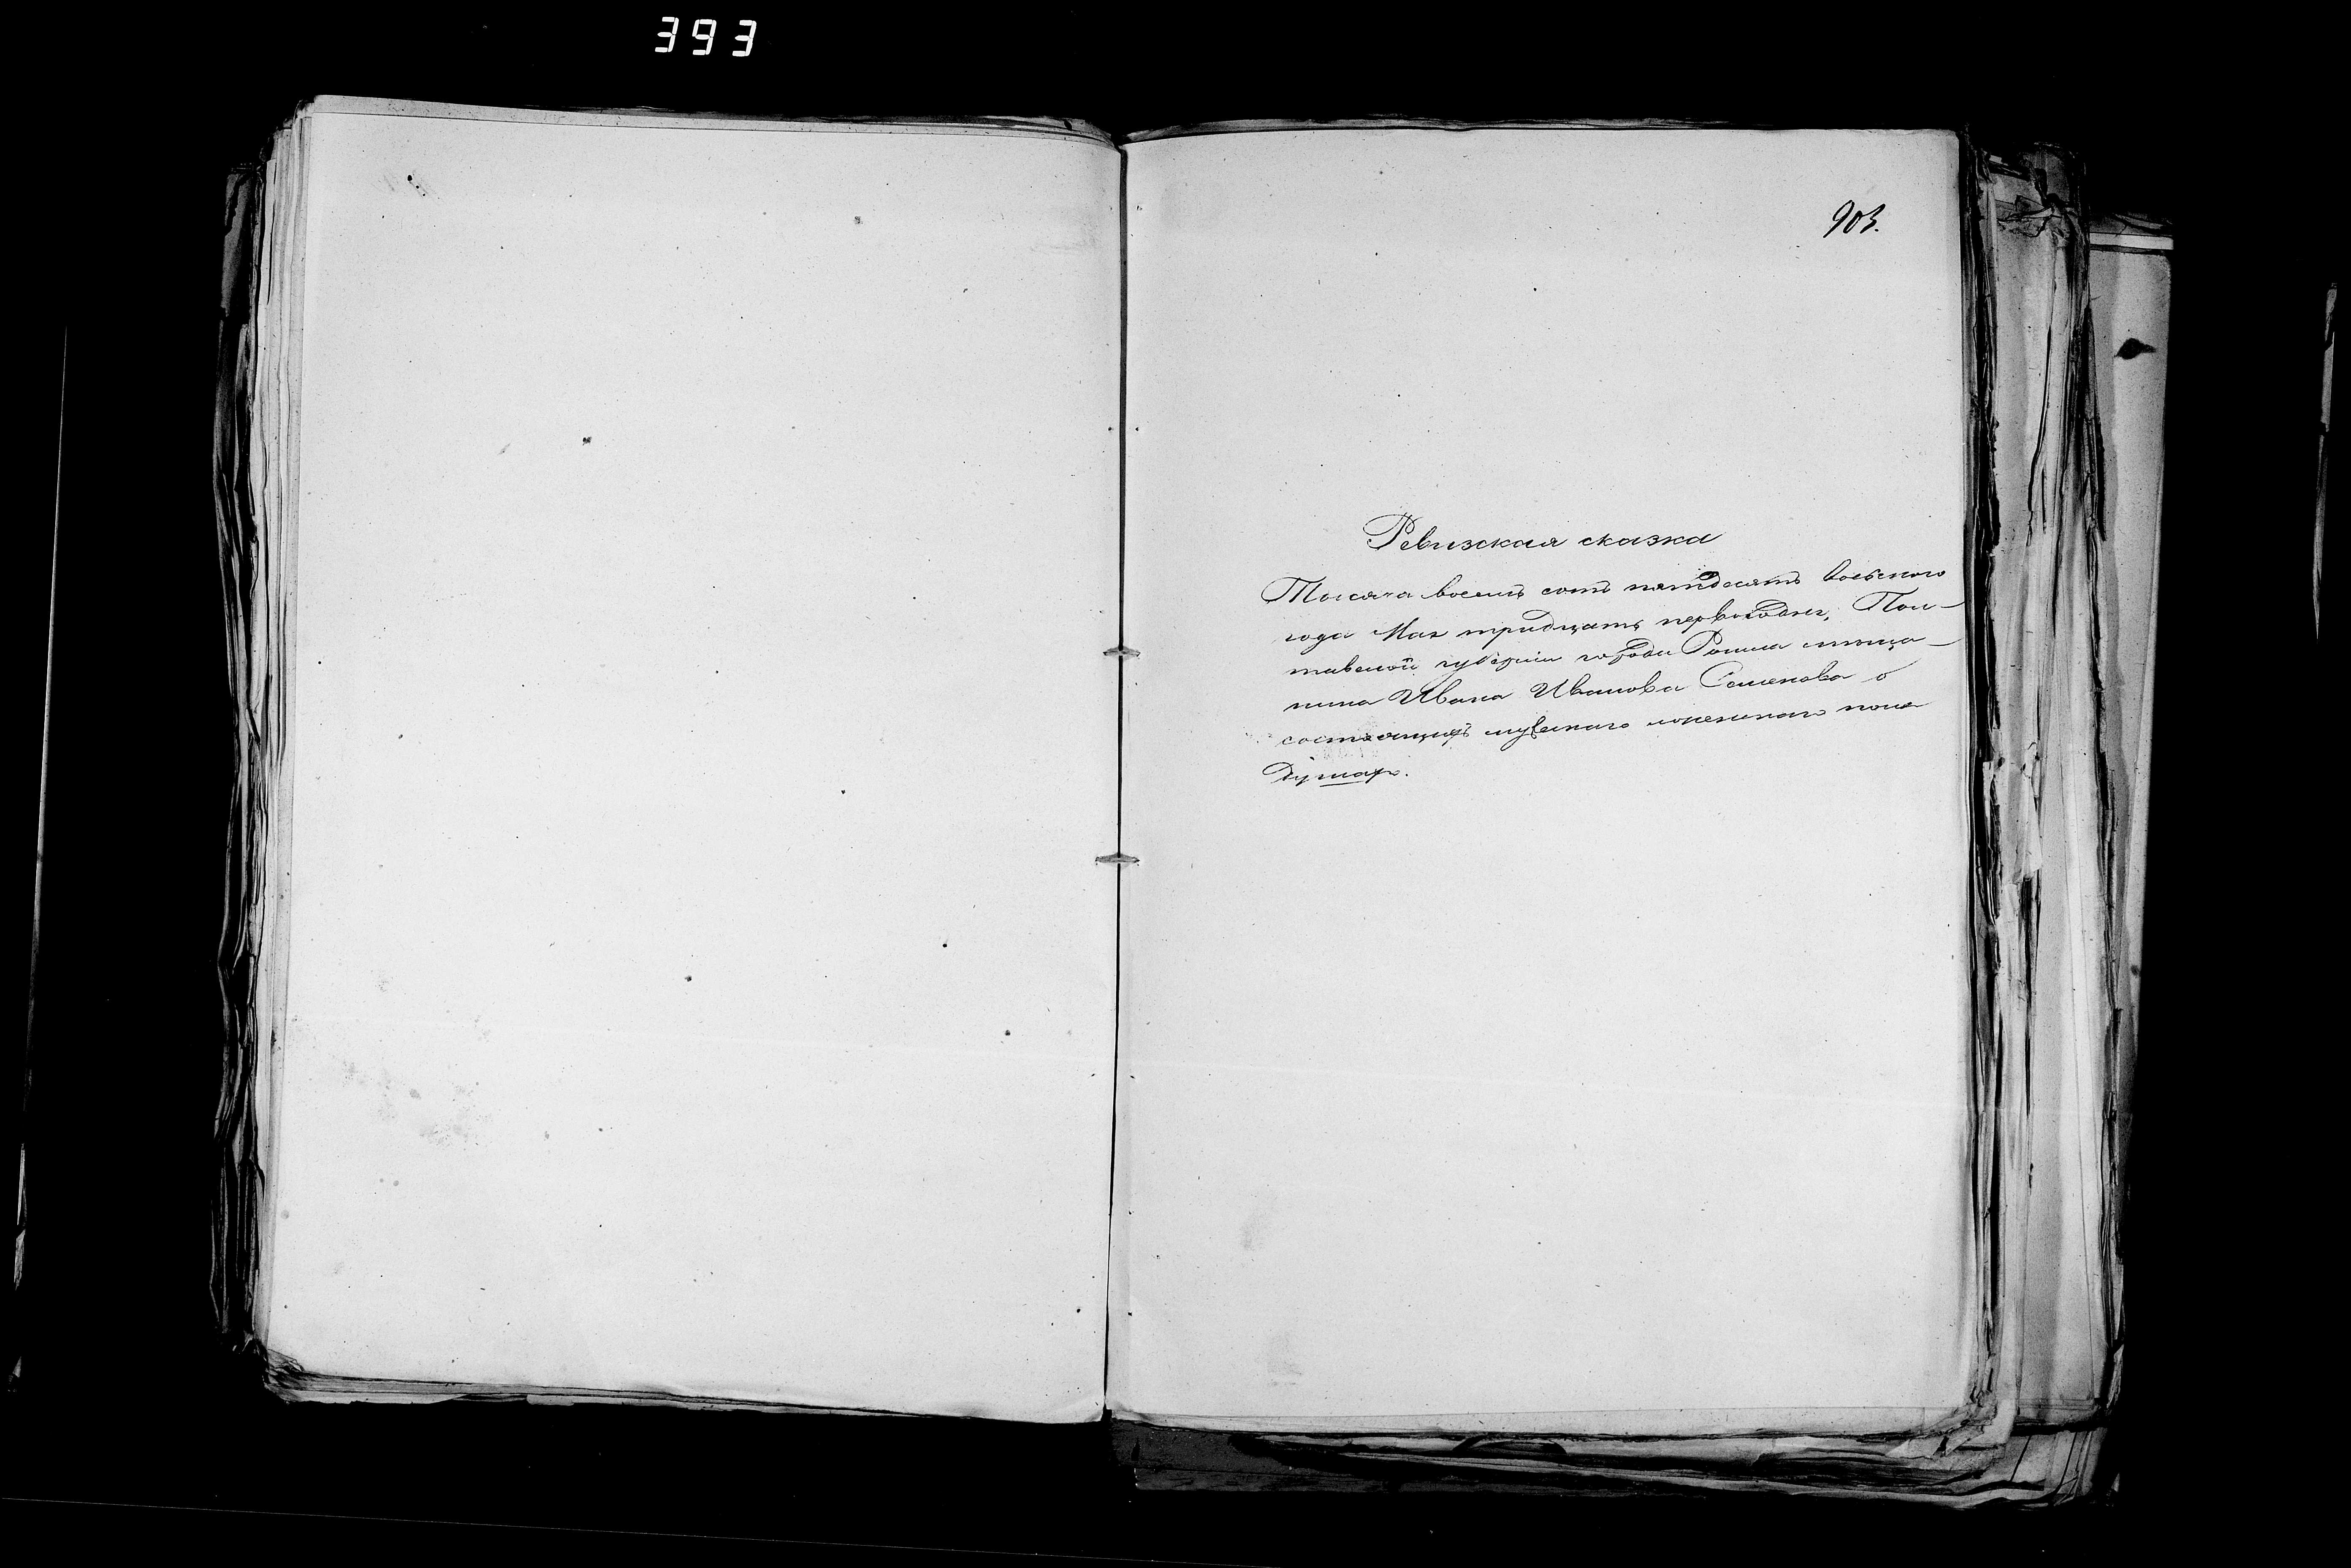 393
903.
Ревизская сказка
Тысяча восемь сотъ пятдесятъ восьмого
года Мая тридцать перваго дня, Пол-
тавской губерніи города Ромна мѣща-
нина Ивана Иванова Семенова о
состоящихъ мужескаго женскаго пола
душах.